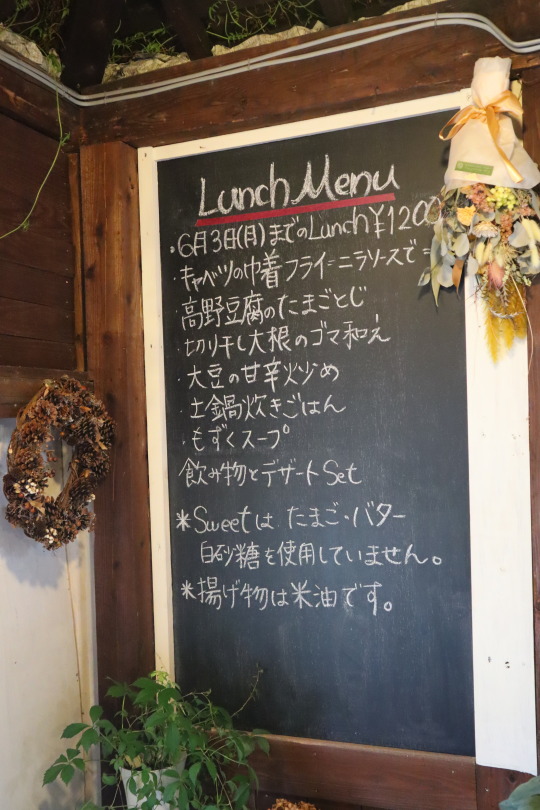 Lunch Menu
・6月3日(月)までのLunch ¥1200
・キャベツの巾着フライ=ニラソースで=
・高野豆腐のたまごとじ
・切り干し大根のゴマ和え
・大豆の甘辛炒め
・土鍋炊きごはん
・もずくスープ
飲み物とデザートSet
*Sweetは たまご・バター
白砂糖を使用していません。
*揚げ物は米油です。